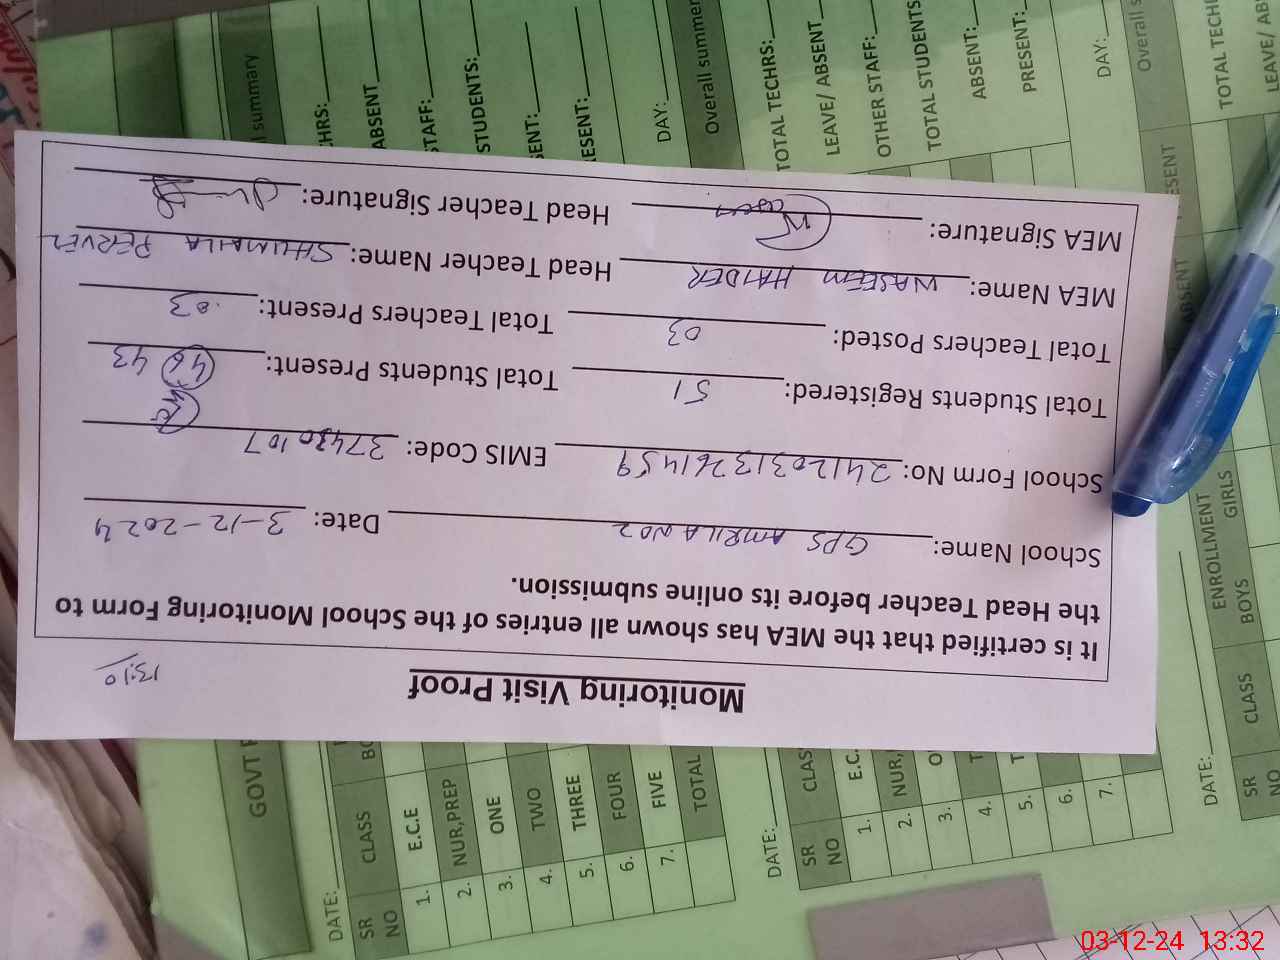 Monitoring Visit Proof
13:10
It is certified that the MEA has shown all entries of the School Monitoring Form to
the Head Teacher before its online submission.
School Name: GPS AMRILA NO 2 Date: 3-12-2024
School Form No: 24120313761459 EMIS Code: 37430107
Total Students Registered: 51 Total Students Present: 46 43
Total Teachers Posted: 03 Total Teachers Present: 03
MEA Name: WASEEM HAIDER Head Teacher Name: SHUMAILA PERVEZ
MEA Signature: Head Teacher Signature:
summary
CHRS:
ABSENT
STAFF:
STUDENTS:
SENT:
ESENT:
DAY:
Overall summer
TOTAL TECHRS:
LEAVE/ ABSENT
OTHER STAFF:
TOTAL STUDENTS
ABSENT:
PRESENT:
DAY:
Overall s
TOTAL TECH
LEAVE/ AB
ESENT
ABSENT
GOVT
DATE:
SR NO CLASS
1. E.C.E
2. NUR,PREP
3. ONE
4. TWO
5. THREE
6. FOUR
7. FIVE
TOTAL
DATE:
SR NO CLAS
1. E.C.
2. NUR,
3. O
4. T
5. T
6.
7.
DATE:
SR NO CLASS
ENROLLMENT
BOYS GIRLS
03-12-24 13:32